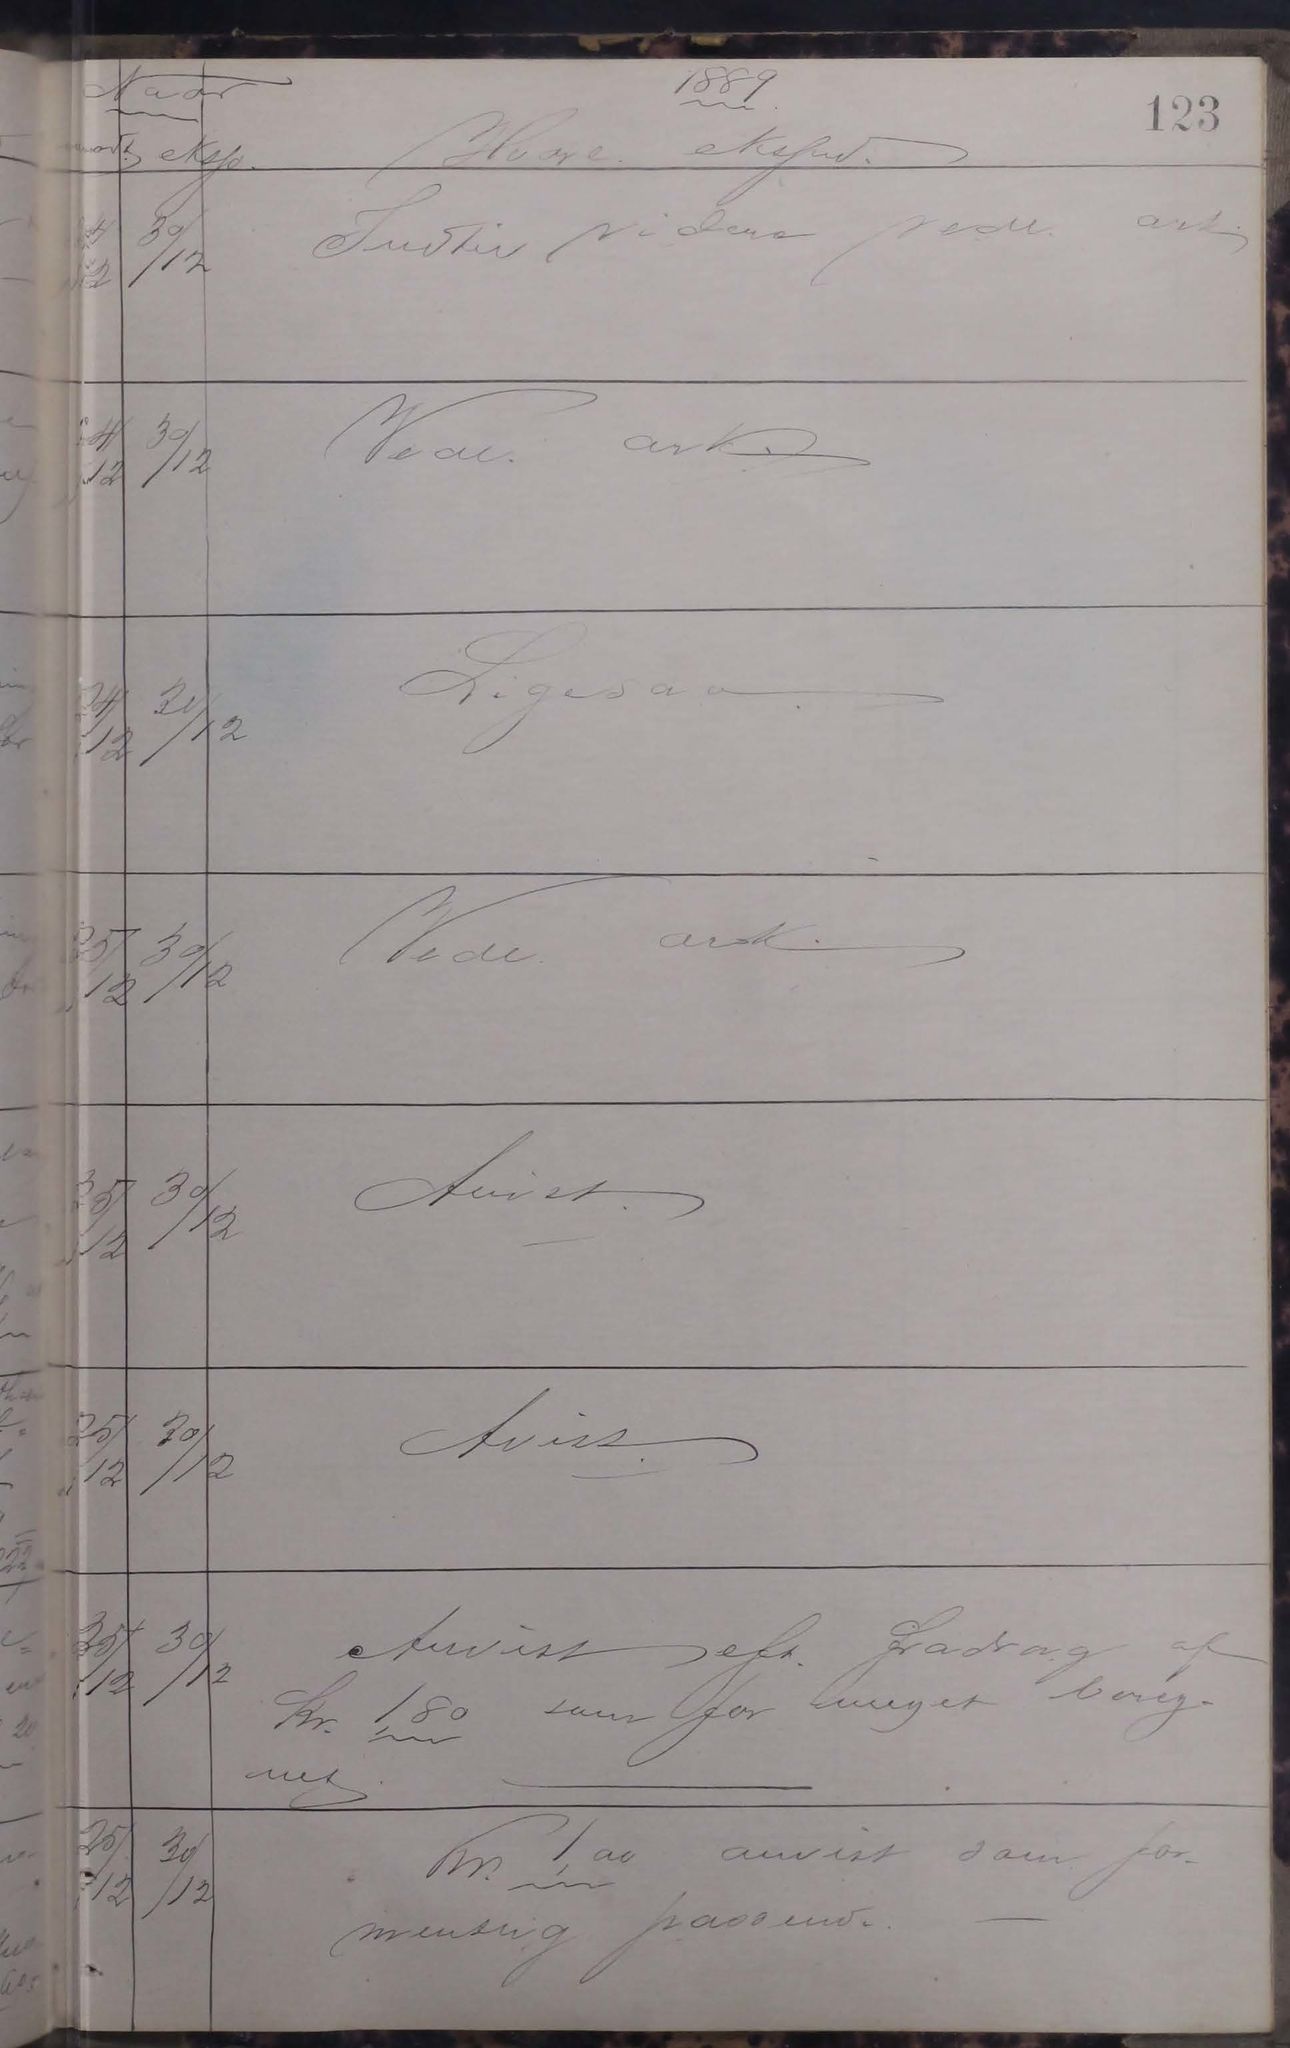 Naar
1889
123
modt. eksp.
Hvore. ekspd.
24/12 30/12 Indtil videre vedl. ark.
24/12 30/12 Vedl. ark.
24/12 30/12 Ligesaa
25/12 30/12 Vedl. ark.
25/12 30/12 Anvist.
25/12 30/12 Avist.
25/12 30/12 Anvist eft. fradrag af
Kr. 1,80 som for meget bereg-
net.
25/12 30/12 Kr. 1,00 anvist som for-
mentlig passend.